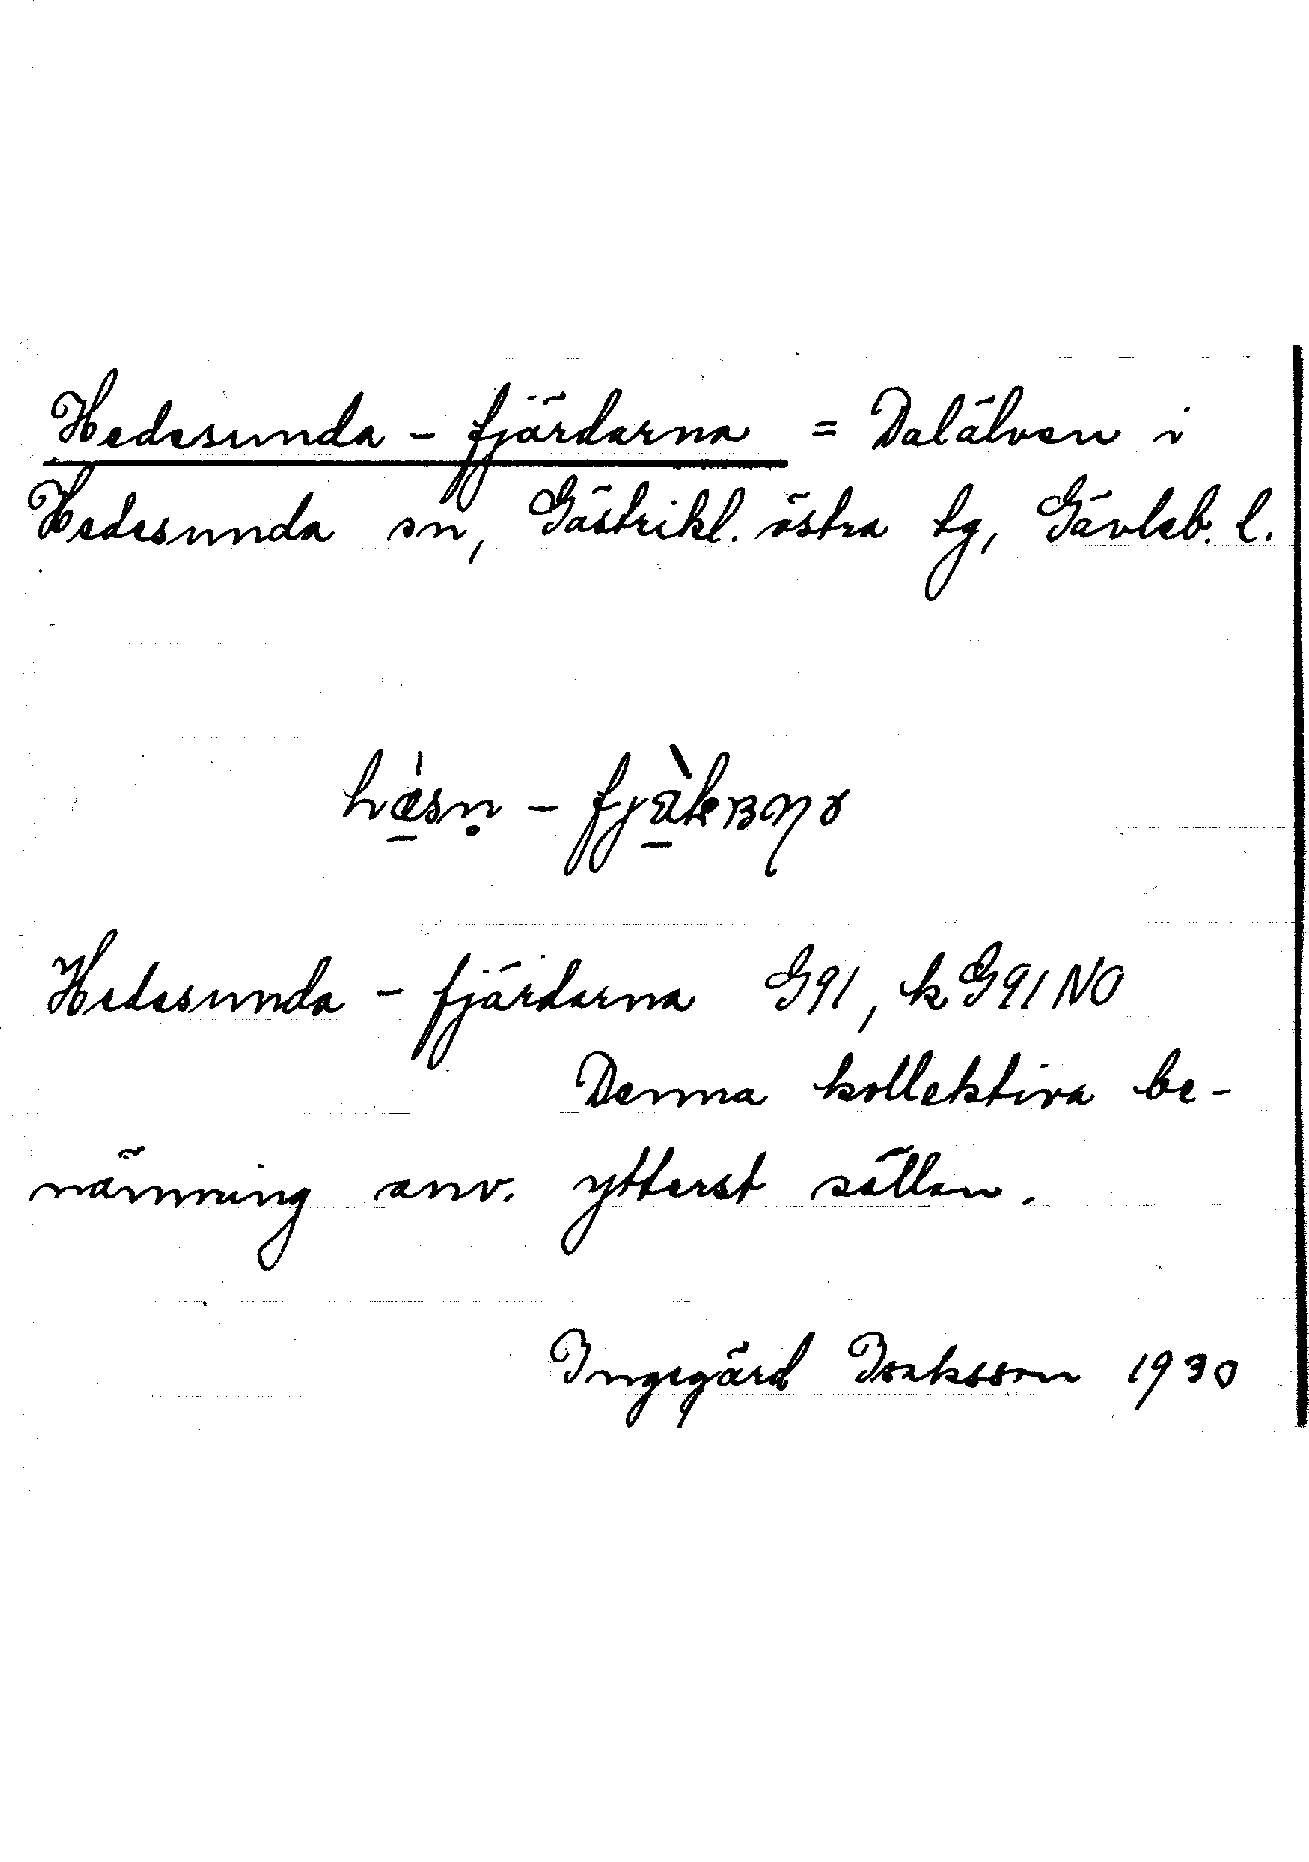 Hedesunda - fjärdarna = Dalälven i
Hedesunda sn, Gästrikl. östra tg, Gävleb. l.
Hedesunda - fjärdarna G91, k G91 NO
Denna kollektiva be-
nämning anv. ytterst sällan.
Ingegärd Isaksson 1930